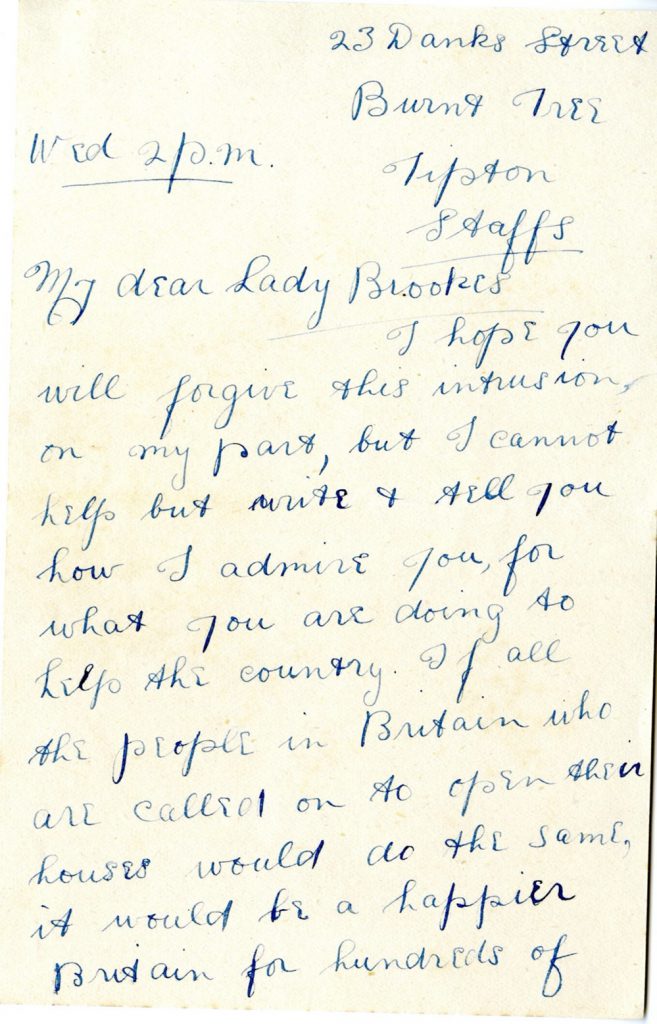 23 Danks Street
Burnt Tree
Wed 2 p.m.
Tipton
Staffs
My dear Lady Brookes
I hope you
will forgive this intrusion,
on my part, but I cannot
help but write & tell you
how I admire you, for
what you are doing to
help the country. If all
the people in Britain who
are called on to open their
houses would do the same,
it would be a happier
Britain for hundreds of